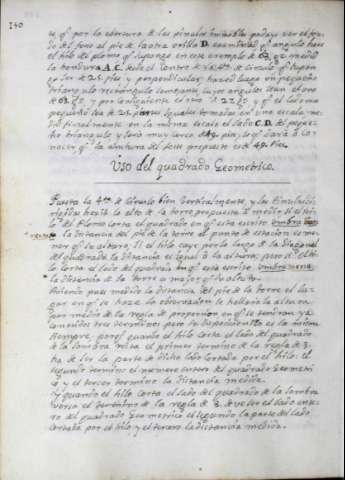 140
te qe por la abertura de las pinulas inmobiles puedas ver el fon-
do del foso al pie de la otra orilla D. examinad qe angulo hace
el hilo del plomo qe supongo en este exemplo de 63. gs. medid
la hondura A.C. desde el centro de la 4ta. de circulo qe supon-
go ser de 25. pies y perpendicular, haced luego un pequeño
triangulo rectangulo semejante, cuyos angulos sean el uno
de 63. gs. y por consiguiente el otro 27. gs. y qe el lado mas
pequeño sea de 25. partes iguales tomadas en una escala, me-
did finalmente en la misma escala el lado C.D. del peque-
ño triangulo y será muy cerca 49. pies, lo qe dará á co-
nocer qe la abertura del foso propuesto será 49. Pies.
Uso del quadrado Geometrico.
Puesta la 4ta. de Circulo bien verticalmente, y las Pinulas di-
rigidas hacia lo alto de la torre propuesta á medir si el hi-
lo del Plomo corta el quadrado en qe está escrito umbra
recta la distancia del pie de la torre al punto de estacion es me-
nor qe su altura. Si el hilo caye por lo largo de la Diagonal
del quadrado la distancia es igual á la altura; pero si el hi-
lo corta el lado del quadrado en qe está escrito umbra versa
la distancia de la torre es mayor qe su altura.
Haviendo pues medido la distancia del pie de la torre el lu-
gar en qe se haze la observacion se hallará la altura
por medio de la regla de proporcion en qe se tendran ya
conocidos tres terminos; pero su disposicion no es la misma
siempre, porqe quando el hilo corta el lado del quadrado
de la sombra recta el primer termino de la regla de 3.
ha de ser la parte de dicho lado cortada por el hilo: el
segundo termino el numero entero del quadrado Geometri-
co y el tercer termino la distancia medida.
Y quando el hilo corta el lado del quadrado de la sombra
versa el termino de la regla de 3. deve ser el lado ente-
ro del quadrado Geometrico el segundo la parte del lado
cortada por el hilo y el tercero la distancia medida.